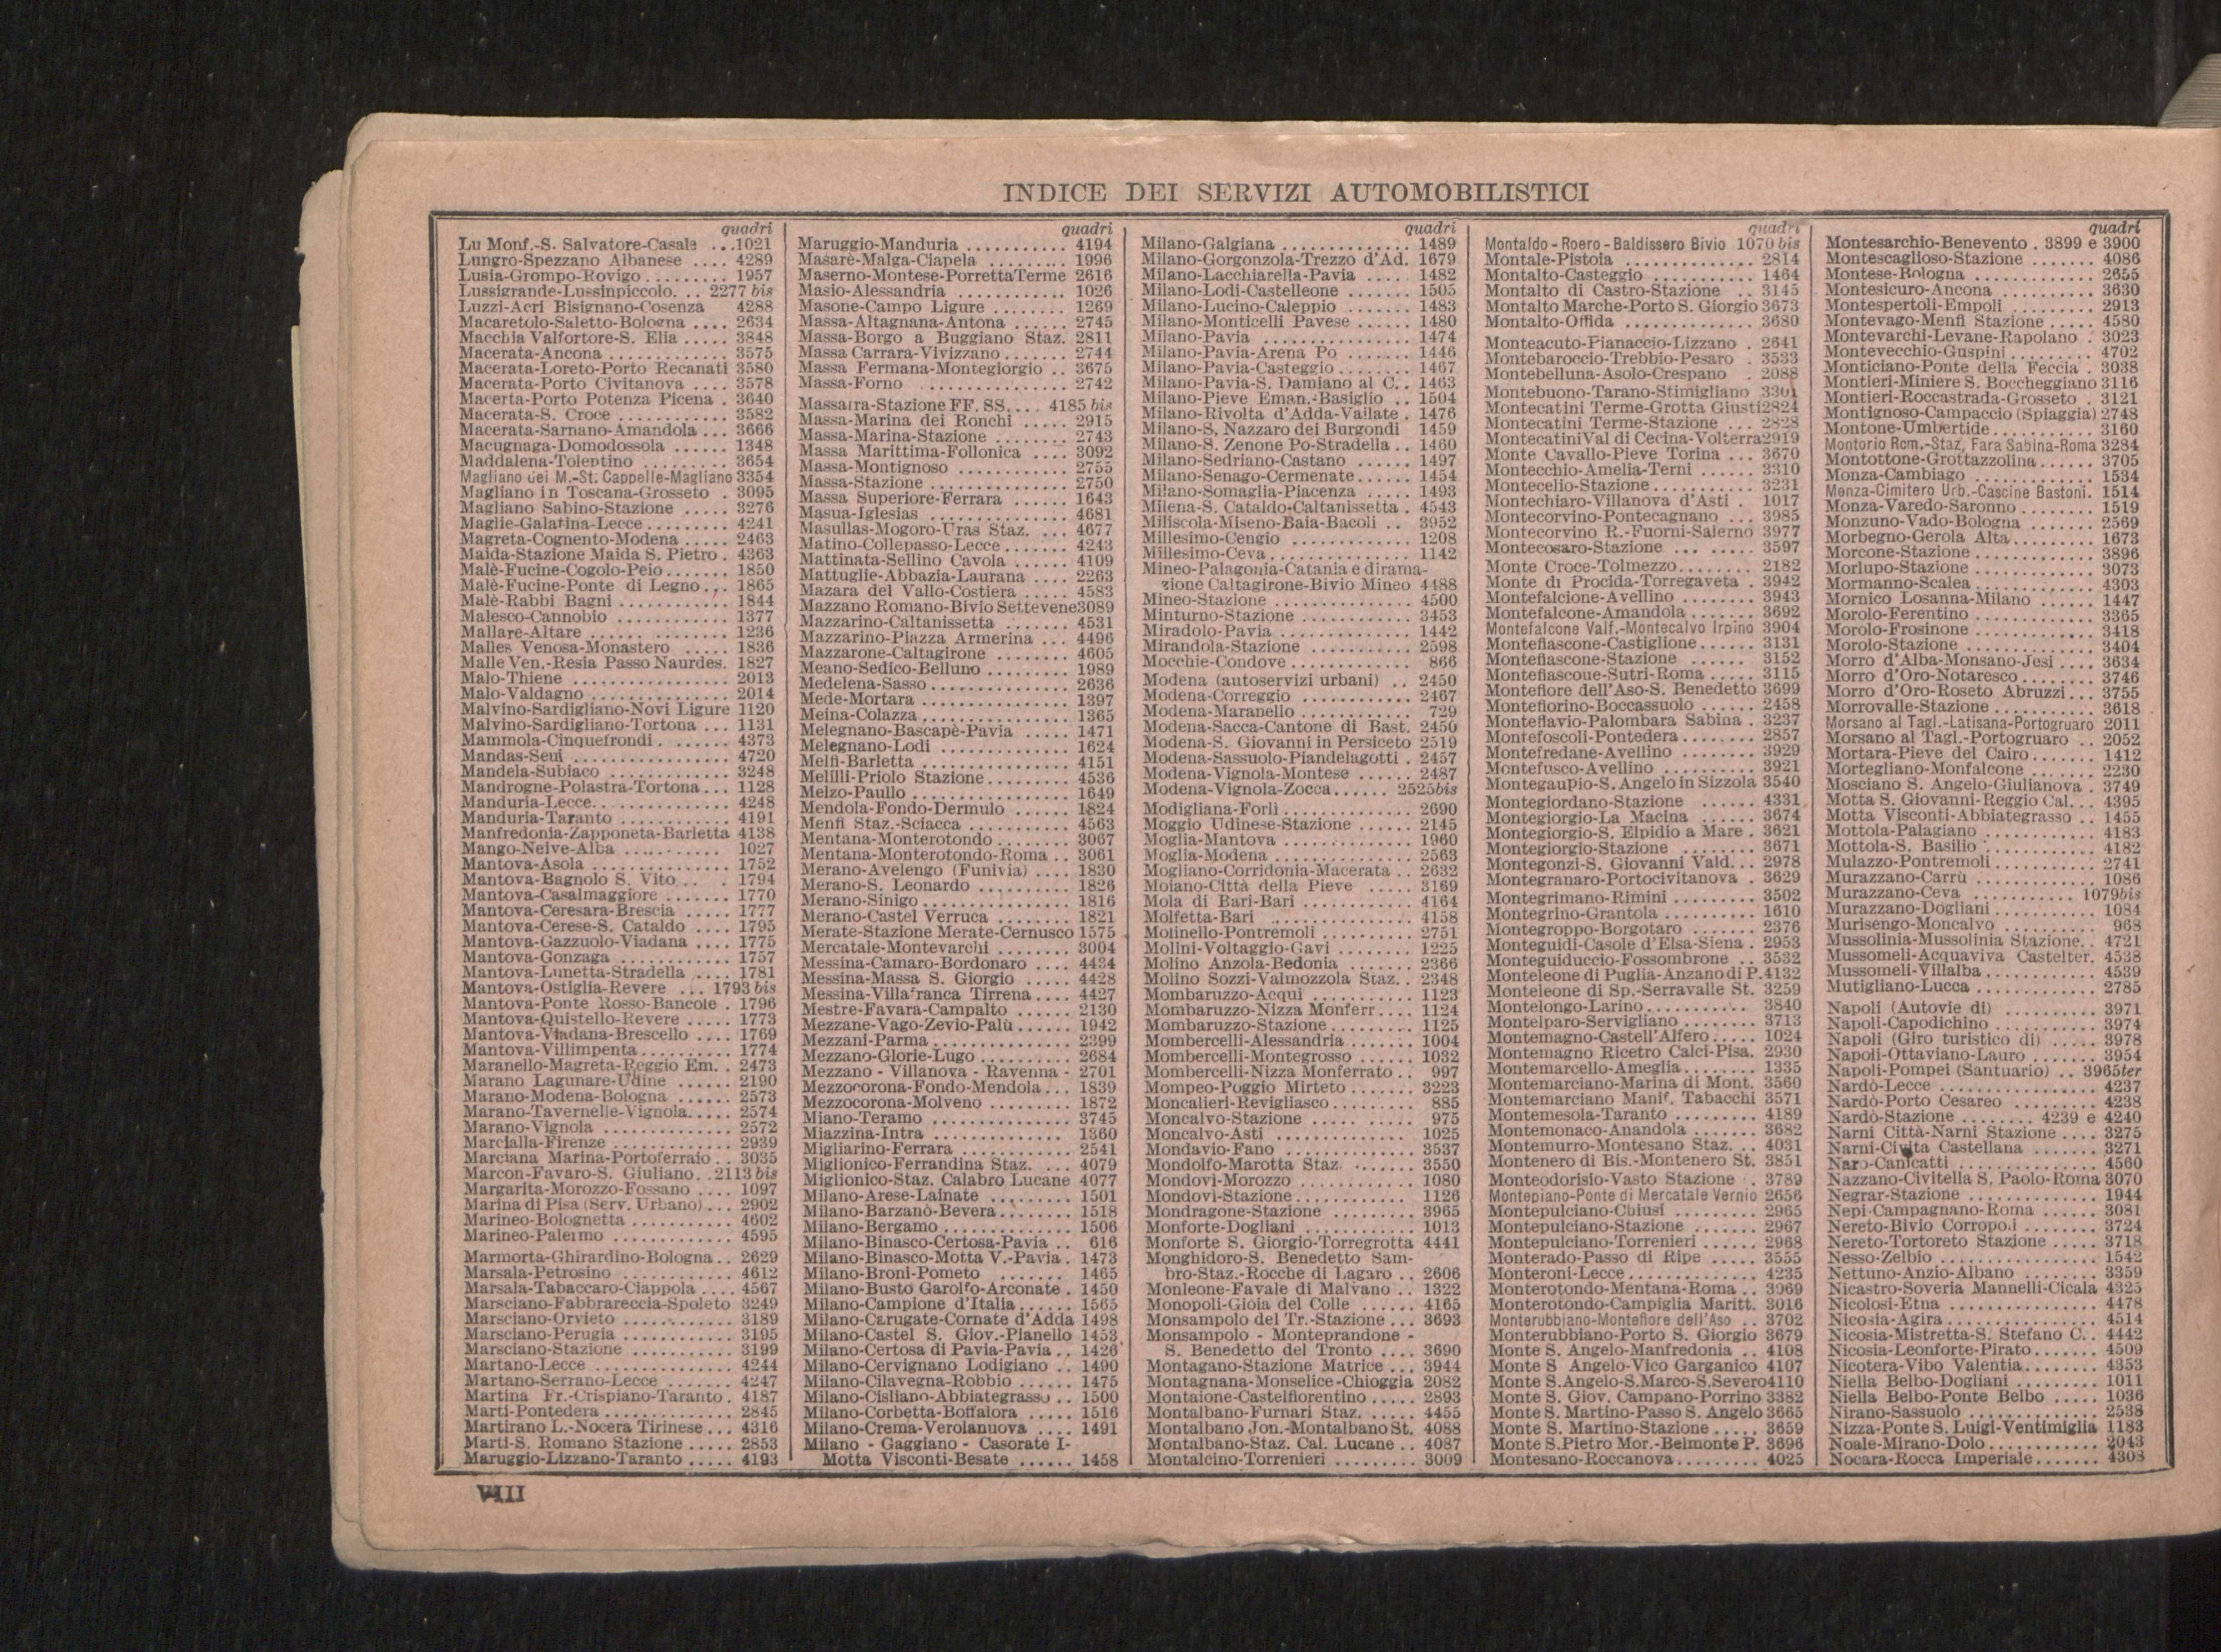 INDICE DEI SERVIZI AUTOMOBILISTICI
quadri
Lu Monf.-S. Salvatore-Casale ...1021
Lungro-Spezzano Albanese .... 4289
Lusia-Grompo-Rovigo ......... 1957
Lussigrande-Lussinpiccolo. .. 2277 bis
Luzzi-Acri Bisignano-Cosenza 4288
Macaretolo-Saletto-Bologna .... 2634
Macchia Valfortore-S. Elia ..... 3848
Macerata-Ancona ............ 3575
Macerata-Loreto-Porto Recanati 3580
Macerata-Porto Civitanova .... 3578
Macerta-Porto Potenza Picena . 3640
Macerata-S. Croce ........... 3582
Macerata-Sarnano-Amandola ... 3666
Macugnaga-Domodossola ...... 1348
Maddalena-Tolentino ......... 3654
Magliano dei M.-St. Cappelle-Magliano 3354
Magliano in Toscana-Grosseto . 3095
Magliano Sabino-Stazione ..... 3276
Maglie-Galatina-Lecce ......... 4241
Magreta-Cognento-Modena ..... 2463
Maida-Stazione Maida S. Pietro . 4363
Malè-Fucine-Cogolo-Peio ....... 1850
Malè-Fucine-Ponte di Legno ... 1865
Malè-Rabbi Bagni ............ 1844
Malesco-Cannobio ............ 1377
Mallare-Altare ............... 1236
Malles Venosa-Monastero ..... 1836
Malle Ven.-Resia Passo Naurdes. 1827
Malo-Thiene ................. 2013
Malo-Valdagno ............... 2014
Malvino-Sardigliano-Novi Ligure 1120
Malvino-Sardigliano-Tortona ... 1131
Mammola-Cinquefrondi. ....... 4373
Mandas-Seui ................. 4720
Mandela-Subiaco ............. 3248
Mandrogne-Polastra-Tortona ... 1128
Manduria-Lecce............... 4248
Manduria-Taranto ............ 4191
Manfredonia-Zapponeta-Barletta 4138
Mango-Neive-Alba ........... 1027
Mantova-Asola ............... 1752
Mantova-Bagnolo S. Vito .. . 1794
Mantova-Casalmaggiore ....... 1770
Mantova-Ceresara-Brescia ..... 1777
Mantova-Cerese-S. Cataldo .... 1795
Mantova-Gazzuolo-Viadana .... 1775
Mantova-Gonzaga ............ 1757
Mantova-Lunetta-Stradella .... 1781
Mantova-Ostiglia-Revere ... 1793 bis
Mantova-Ponte Rosso-Bancole . 1796
Mantova-Quistello-Revere ..... 1773
Mantova-Viadana-Brescello .... 1769
Mantova-Villimpenta .......... 1774
Maranello-Magreta-Reggio Em. . 2473
Marano Lagunare-Udine ...... 2190
Marano-Modena-Bologna ...... 2573
Marano-Tavernelle-Vignola..... 2574
Marano-Vignola .............. 2572
Marcialla-Firenze ............ 2939
Marciana Marina-Portoferraio .. 3035
Marcon-Favaro-S. Giuliano. .2113 bis
Margarita-Morozzo-Fossano .... 1097
Marina di Pisa (Serv. Urbano) ... 2902
Marineo-Bolognetta ........... 4602
Marineo-Palermo ............ 4595
Marmorta-Ghirardino-Bologna .. 2629
Marsala-Petrosino ........... 4612
Marsala-Tabaccaro-Ciappola .... 4567
Marsciano-Fabbrareccia-Spoleto 3249
Marsciano-Orvieto ........... 3189
Marsciano-Perugia ........... 3195
Marsciano-Stazione ........... 3199
Martano-Lecce ............... 4244
Martano-Serrano-Lecce ....... 4247
Martina Fr.-Crispiano-Taranto . 4187
Marti-Pontedera .............. 2845
Martirano L.-Nocera Tirinese ... 4316
Marti-S. Romano Stazione ..... 2853
Maruggio-Lizzano-Taranto ..... 4193
quadri
Maruggio-Manduria ........... 4194
Masarè-Malga-Ciapela ......... 1996
Maserno-Montese-PorrettaTerme 2616
Masio-Alessandria ............ 1026
Masone-Campo Ligure ........ 1269
Massa-Altagnana-Antona ...... 2745
Massa-Borgo a Buggiano Staz. 2811
Massa Carrara-Vivizzano ....... 2744
Massa Fermana-Montegiorgio .. 3675
Massa-Forno ................ 2742
Massarra-Stazione FF. SS.... 4185 bis
Massa-Marina dei Ronchi ..... 2915
Massa-Marina-Stazione ........ 2743
Massa Marittima-Follonica .... 3092
Massa-Montignoso ............ 2755
Massa-Stazione .............. 2750
Massa Superiore-Ferrara ...... 1643
Masua-Iglesias ............... 4681
Masullas-Mogoro-Uras Staz. ... 4677
Matino-Collepasso-Lecce ....... 4243
Mattinata-Sellino Cavola ...... 4109
Mattuglie-Abbazia-Laurana .... 2263
Mazara del Vallo-Costiera ..... 4583
Mazzano Romano-Bivio Settevene3089
Mazzarino-Caltanissetta ....... 4531
Mazzarino-Piazza Armerina ... 4496
Mazzarone-Caltagirone ........ 4605
Meano-Sedico-Belluno ......... 1989
Medelena-Sasso ............... 2636
Mede-Mortara ................ 1397
Meina-Colazza ................ 1365
Melegnano-Bascapè-Pavia ..... 1471
Melegnano-Lodi .............. 1624
Melfi-Barletta ................ 4151
Melilli-Priolo Stazione ......... 4536
Melzo-Paullo ................. 1649
Mendola-Fondo-Dermulo ...... 1824
Menfi Staz.-Sciacca ........... 4563
Mentana-Monterotondo ........ 3067
Mentana-Monterotondo-Roma .. 3061
Merano-Avelengo (Funivia) .... 1830
Merano-S. Leonardo .......... 1826
Merano-Sinigo ................ 1816
Merano-Castel Verruca ........ 1821
Merate-Stazione Merate-Cernusco 1575
Mercatale-Montevarchi ........ 3004
Messina-Camaro-Bordonaro .... 4434
Messina-Massa S. Giorgio ..... 4428
Messina-Villafranca Tirrena .... 4427
Mestre-Favara-Campalto ...... 2130
Mezzane-Vago-Zevio-Palù ...... 1942
Mezzani-Parma .............. 2399
Mezzano-Glorie-Lugo .......... 2684
Mezzano - Villanova - Ravenna - 2701
Mezzocorona-Fondo-Mendola ... 1839
Mezzocorona-Molveno ......... 1872
Miano-Teramo ............... 3745
Miazzina-Intra .............. 1360
Migliarino-Ferrara ............ 2541
Miglionico-Ferrandina Staz. ... 4079
Miglionico-Staz. Calabro Lucane 4077
Milano-Arese-Lainate ......... 1501
Milano-Barzanò-Bevera ........ 1518
Milano-Bergamo .............. 1506
Milano-Binasco-Certosa-Pavia .. 616
Milano-Binasco-Motta V.-Pavia . 1473
Milano-Broni-Pometo ....... 1465
Milano-Busto Garolfo-Arconate . 1450
Milano-Campione d'Italia ...... 1565
Milano-Carugate-Cornate d'Adda 1498
Milano-Castel S. Giov.-Pianello 1453
Milano-Certosa di Pavia-Pavia .. 1426
Milano-Cervignano Lodigiano .. 1490
Milano-Cilavegna-Robbio ...... 1475
Milano-Cisliano-Abbiategrasso .. 1500
Milano-Corbetta-Boffalora ..... 1516
Milano-Crema-Verolanuova .... 1491
Milano - Gaggiano - Casorate I-
Motta Visconti-Besate ...... 1458
quadri
Milano-Galgiana ............. 1489
Milano-Gorgonzola-Trezzo d'Ad. 1679
Milano-Lacchiarella-Pavia ..... 1482
Milano-Lodi-Castelleone ....... 1505
Milano-Lucino-Caleppio ....... 1483
Milano-Monticelli Pavese ...... 1480
Milano-Pavia ................ 1474
Milano-Pavia-Arena Po ....... 1446
Milano-Pavia-Casteggio ........ 1467
Milano-Pavia-S. Damiano al C.. 1463
Milano-Pieve Eman.-Basiglio .. 1504
Milano-Rivolta d'Adda-Vailate . 1476
Milano-S. Nazzaro dei Burgondi 1459
Milano-S. Zenone Po-Stradella .. 1460
Milano-Sedriano-Castano ...... 1497
Milano-Senago-Cermenate ...... 1454
Milano-Somaglia-Piacenza ..... 1493
Milena-S. Cataldo-Caltanissetta . 4543
Miliscola-Miseno-Baia-Bacoli .. 3952
Millesimo-Cengio ............ 1208
Millesimo-Ceva ............... 1142
Mineo-Palagonia-Catania e dirama-
zione Caltagirone-Bivio Mineo 4488
Mineo-Stazione ............... 4500
Minturno-Stazione ............ 3453
Miradolo-Pavia .............. 1442
Mirandola-Stazione ........... 2598
Mocchie-Condove ............. 866
Modena (autoservizi urbani) .. 2450
Modena-Correggio ........... 2467
Modena-Maranello ............ 729
Modena-Sacca-Cantone di Bast. 2450
Modena-S. Giovanni in Persiceto 2519
Modena-Sassuolo-Piandelagotti . 2457
Modena-Vignola-Montese ...... 2487
Modena-Vignola-Zocca ...... 2525bis
Modigliana-Forlì ............. 2690
Moggio Udinese-Stazione ...... 2145
Moglia-Mantova .............. 1960
Moglia-Modena .............. 2563
Mogliano-Corridonia-Macerata .. 2632
Moiano-Città della Pieve ..... 3169
Mola di Bari-Bari ............ 4164
Molfetta-Bari ............... 4158
Molinello-Pontremoli .......... 2751
Molini-Voltaggio-Gavi ......... 1225
Molino Anzola-Bedonia ....... 2366
Molino Sozzi-Valmozzola Staz. . 2348
Mombaruzzo-Acqui ........... 1123
Mombaruzzo-Nizza Monferr .... 1124
Mombaruzzo-Stazione ......... 1125
Mombercelli-Alessandria ....... 1004
Mombercelli-Montegrosso ...... 1032
Mombercelli-Nizza Monferrato .. 997
Mompeo-Poggio Mirteto ....... 3223
Moncalieri-Revigliasco ......... 885
Moncalvo-Stazione ........... 975
Moncalvo-Asti .............. 1025
Mondavio-Fano ............. 3537
Mondolfo-Marotta Staz. ....... 3550
Mondovì-Morozzo ............ 1080
Mondovì-Stazione ............. 1126
Mondragone-Stazione ......... 3965
Monforte-Dogliani ............ 1013
Monforte S. Giorgio-Torregrotta 4441
Monghidoro-S. Benedetto Sam-
bro-Staz.-Rocche di Lagaro .. 2606
Monleone-Favale di Malvano .. 1322
Monopoli-Gioia del Colle ...... 4165
Monsampolo del Tr.-Stazione ... 3693
Monsampolo - Monteprandone -
S. Benedetto del Tronto .... 3690
Montagano-Stazione Matrice ... 3944
Montagnana-Monselice-Chioggia 2082
Montaione-Castelfiorentino ..... 2893
Montalbano-Furnari Staz. ..... 4455
Montalbano Jon.-Montalbano St. 4088
Montalbano-Staz. Cal. Lucane .. 4087
Montalcino-Torrenieri ......... 3009
quadri
Montaldo - Roero - Baldissero Bivio 1070 bis
Montale-Pistoia .............. 2814
Montalto-Casteggio ........... 1464
Montalto di Castro-Stazione .. 3145
Montalto Marche-Porto S. Giorgio 3673
Montalto-Offida .............. 3680
Monteacuto-Pianaccio-Lizzano . 2641
Montebaroccio-Trebbio-Pesaro . 3533
Montebelluna-Asolo-Crespano . 2088
Montebuono-Tarano-Stimigliano 3301
Montecatini Terme-Grotta Giusti2824
Montecatini Terme-Stazione ... 2828
MontecatiniVal di Cecina-Volterra2919
Monte Cavallo-Pieve Torina ... 3670
Montecchio-Amelia-Terni ...... 3310
Montecelio-Stazione ........... 3231
Montechiaro-Villanova d'Asti . 1017
Montecorvino-Pontecagnano ... 3985
Montecorvino R.-Fuorni-Salerno 3977
Montecosaro-Stazione ... ..... 3597
Monte Croce-Tolmezzo ........ 2182
Monte di Procida-Torregaveta . 3942
Montefalcione-Avellino ........ 3943
Montefalcone-Amandola ....... 3692
Montefalcone Valf.-Montecalvo Irpino 3904
Montefiascone-Castiglione ...... 3131
Montefiascone-Stazione ...... 3152
Montefiascone-Sutri-Roma ..... 3115
Montefiore dell'Aso-S. Benedetto 3699
Montefiorino-Boccassuolo ...... 2458
Monteflavio-Palombara Sabina . 3237
Montefoscoli-Pontedera ........ 2857
Montefredane-Avellino ........ 3929
Montefusco-Avellino .......... 3921
Montegaupio-S. Angelo in Sizzola 3540
Montegiordano-Stazione ...... 4331
Montegiorgio-La Macina ...... 3674
Montegiorgio-S. Elpidio a Mare . 3621
Montegiorgio-Stazione ........ 3671
Montegonzi-S. Giovanni Vald. .. 2978
Montegranaro-Portocivitanova . 3629
Montegrimano-Rimini ......... 3502
Montegrino-Grantola .......... 1610
Montegroppo-Borgotaro ....... 2376
Monteguidi-Casole d'Elsa-Siena . 2953
Monteguiduccio-Fossombrone .. 3532
Monteleone di Puglia-Anzano di P.4132
Monteleone di Sp.-Serravalle St. 3259
Montelongo-Larino ........... 3840
Montelparo-Servigliano ........ 3713
Montemagno-Castell'Alfero ..... 1024
Montemagno Ricetro Calci-Pisa. 2930
Montemarcello-Ameglia ........ 1335
Montemarciano-Marina di Mont. 3560
Montemarciano Manif. Tabacchi 3571
Montemesola-Taranto ......... 4189
Montemonaco-Anandola ....... 3682
Montemurro-Montesano Staz. .. 4031
Montenero di Bis.-Montenero St. 3851
Monteodorisio-Vasto Stazione . 3789
Montepiano-Ponte di Mercatale Vernio 2656
Montepulciano-Chiusi ......... 2965
Montepulciano-Stazione ....... 2967
Montepulciano-Torrenieri ...... 2968
Monterado-Passo di Ripe ..... 3555
Monteroni-Lecce .............. 4235
Monterotondo-Mentana-Roma .. 3969
Monterotondo-Campiglia Maritt. 3016
Monterubbiano-Montefiore dell'Aso .. 3702
Monterubbiano-Porto S. Giorgio 3679
Monte S. Angelo-Manfredonia .. 4108
Monte S Angelo-Vico Garganico 4107
Monte S.Angelo-S.Marco-S.Severo4110
Monte S. Giov. Campano-Porrino 3382
Monte S. Martino-Passo S. Angelo 3665
Monte S. Martino-Stazione ..... 3659
Monte S.Pietro Mor.-Belmonte P. 3696
Montesano-Roccanova ......... 4025
quadri
Montesarchio-Benevento . 3899 e 3900
Montescaglioso-Stazione ....... 4086
Montese-Bologna ............. 2655
Montesicuro-Ancona .......... 3630
Montespertoli-Empoli ......... 2913
Montevago-Menfi Stazione ..... 4580
Montevarchi-Levane-Rapolano . 3023
Montevecchio-Guspini ......... 4702
Monticiano-Ponte della Feccia . 3038
Montieri-Miniere S. Boccheggiano 3116
Montieri-Roccastrada-Grosseto . 3121
Montignoso-Campaccio (Spiaggia) 2748
Montone-Umbertide ........... 3160
Montorio Rom.-Staz. Fara Sabina-Roma 3284
Montottone-Grottazzolina ...... 3705
Monza-Cambiago ............. 1534
Monza-Cimitero Urb.-Cascine Bastoni. 1514
Monza-Varedo-Saronno ........ 1519
Monzuno-Vado-Bologna ....... 2569
Morbegno-Gerola Alta ......... 1673
Morcone-Stazione ............. 3896
Morlupo-Stazione ............. 3073
Mormanno-Scalea ............. 4303
Mornico Losanna-Milano ...... 1447
Morolo-Ferentino ............. 3365
Morolo-Frosinone ............. 3418
Morolo-Stazione .............. 3404
Morro d'Alba-Monsano-Jesi .... 3634
Morro d'Oro-Notaresco ........ 3746
Morro d'Oro-Roseto Abruzzi ... 3755
Morrovalle-Stazione ........... 3618
Morsano al Tagl.-Latisana-Portogruaro 2011
Morsano al Tagl.-Portogruaro .. 2052
Mortara-Pieve del Cairo ....... 1412
Mortegliano-Monfalcone ....... 2230
Mosciano S. Angelo-Giulianova . 3749
Motta S. Giovanni-Reggio Cal. .. 4395
Motta Visconti-Abbiategrasso .. 1455
Mottola-Palagiano ............ 4183
Mottola-S. Basilio ............ 4182
Mulazzo-Pontremoli ........... 2741
Murazzano-Carrù ............. 1086
Murazzano-Ceva ........... 1079bis
Murazzano-Dogliani ........... 1084
Murisengo-Moncalvo ......... 968
Mussolinia-Mussolinia Stazione. . 4721
Mussomeli-Acquaviva Castelter. 4538
Mussomeli-Villalba ............ 4539
Mutigliano-Lucca ............. 2785
Napoli (Autovie di) .......... 3971
Napoli-Capodichino ........... 3974
Napoli (Giro turistico di) ..... 3978
Napoli-Ottaviano-Lauro ....... 3954
Napoli-Pompei (Santuario) .. 3965ter
Nardò-Lecce ................. 4237
Nardò-Porto Cesareo ......... 4238
Nardò-Stazione ........ 4239 e 4240
Narni Città-Narni Stazione .... 3275
Narni-Civita Castellana ....... 3271
Naro-Canicatti ............... 4560
Nazzano-Civitella S. Paolo-Roma 3070
Negrar-Stazione .............. 1944
Nepi Campagnano-Roma ...... 3081
Nereto-Bivio Corropoli ........ 3724
Nereto-Tortoreto Stazione ..... 3718
Nesso-Zelbio ................. 1542
Nettuno-Anzio-Albano ........ 3359
Nicastro-Soveria Mannelli-Cicala 4325
Nicolosi-Etna ................ 4478
Nicosia-Agira ................ 4514
Nicosia-Mistretta-S. Stefano C. . 4442
Nicosia-Leonforte-Pirato ....... 4509
Nicotera-Vibo Valentia ........ 4353
Niella Belbo-Dogliani ......... 1011
Niella Belbo-Ponte Belbo ..... 1036
Nirano-Sassuolo .............. 2538
Nizza-Ponte S. Luigi-Ventimiglia 1183
Noale-Mirano-Dolo ............ 2043
Nocara-Rocca Imperiale ....... 4303
VIII